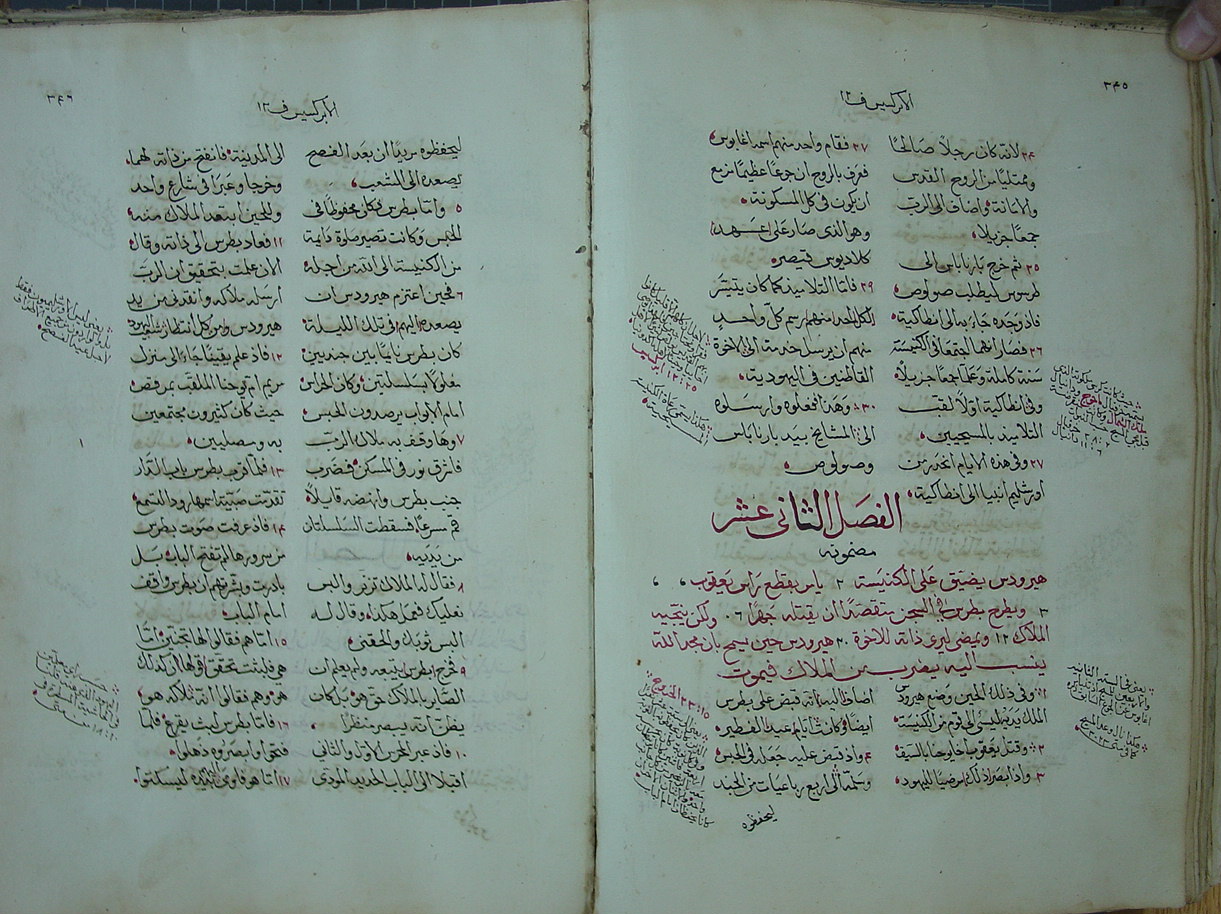 ٣٤٥
الابركسيس ف ١٢
٢٤ لانه كان رجلاً صالحًا
وممتليًا من الروح القدس
والامانة واضاف الى الرب
جمعًا جزيلا
٢٥ ثم خرج بارناباس الى
طرسوس ليطلب صولوص
فاذ وجده جاء به الى انطاكية
٢٦ فصار انهما اجتمعا في الكنيسة
سنة كاملة وعلما جمعًا جزيلا
وفي انطاكية اولا لقب
التلاميذ بالمسيحيين
٢٧ وفي هذه الايام انحدر من
اورشليم انبيا الى انطاكية
٢٧ فقام واحد منهم اسمه اغابوس
فعرف بالروح ان جوعًا عظيمًا مزمع
ان يكون في كل المسكونة
وهو الذي صار على عهد
كلاديوس قيصر
٢٩ فاما التلاميذ كما كان يتيسر
لكل احد منهم رسم كل واحد
منهم ان يرسل خدمة الى الاخوة
القاطنين في اليهودية
٣٠ وهذا فعلوه وارسلوه
الى المشايخ بيد بارناباس
وصولوص
الفصل الثاني عشر
مضمونه
هيرودس يضيق على الكنيسة ٢ يامر بقطع راس يعقوب
٣ ويطرح بطرس في السجن متقصدًا ان يقتله جهرًا ٦ ولكن ينجيه
الملاك ١٢ ويمضي ليري ذاته للاخوة ٢٠ هيرودس حين يسمح بان مجد الله
ينسب اليه يضرب من الملاك فيموت
١ وفي ذلك الحين وضع هيرودس
الملك يديه ليسي الى قوم من الكنيسة
٢ وقتل يعقوب اخا يوحنا بالسيف
٣ واذ ابصر ان ذلك مرضيًا لليهود
اضاف اليه انه قبض على بطرس
ايضًا وكانت ايام عيد الفطير
٤ واذ قبض عليه جعله في الحبس
وسلمه الى اربع رباعيات من الجند
ليحفظوه
٣٤٦
الابركسيس ف ١٢
ليحفظوه مريدًا ان بعد الفصح
يصعده الى الشعب
٥ واما بطرس فكان محفوظًا في
الحبس وكانت تصير صلوة دايمة
من الكنيسة الى الله من اجله
٦ فحين اعتزم هيرودس ان
يصعده اليهم في تلك الليلة
كان بطرس نايمًا بين جنديين
مغلولاً بسلسلتين وكان الحراس
امام الابواب يرصدون الحبس
٧ وها وقف به ملاك الرب
فاشرق نور في المسكن فضرب
جنب بطرس وانهضه قايلاً
قم سرعًا فسقطت السلسلتان
من يديه
٨ فقال له الملاك تزنر والبس
نعليك فعمل هكذا وقال له
البس ثوبك والحقني
٩ فخرج بطرس يتبعه ولم يعلم ان
الصاير بالملاك حق هو بل كان
يظن انه يبصر منظرًا
١٠ فاذ عبر المحرس الاول والثاني
اقبلا الى الباب الحديد المودي
الى المدينة فانفتح من ذاته لهما
وخرجا وعبرا في شارع واحد
وللحين ابتعد الملاك منه
١١ فعاد بطرس الى ذاته وقال
الان علمت بتحقيق ان الرب
ارسل ملاكه وانقذني من يد
هيرودس ومن كل انتظار شعب اليهود
١٢ فاذ علم يقينًا جاء الى منزل
مريم ام يوحنا الملقب بمرقص
حيث كان كثيرون مجتمعين
به ومصليين
١٣ فلما قرع بطرس باب الدار
تقدمت صبية اسمها رودا لتسمع
١٤ فاذ عرفت صوت بطرس
من سرورها لم تفتح الباب بل
بادرت وبشرتهم ان بطرس واقف
امام الباب
١٥ اما هم فقالوا لها تجننتِ اما
هي فلبثت تحقق اقولها ان كذلك
هو وهم فقالوا انه ملاكه هو
١٦ فاما بطرس لبث يقرع فلما
فتحوا وابصروه ذهلوا
١٧ اما هو فاومى اليهم بيده ليسكتوا